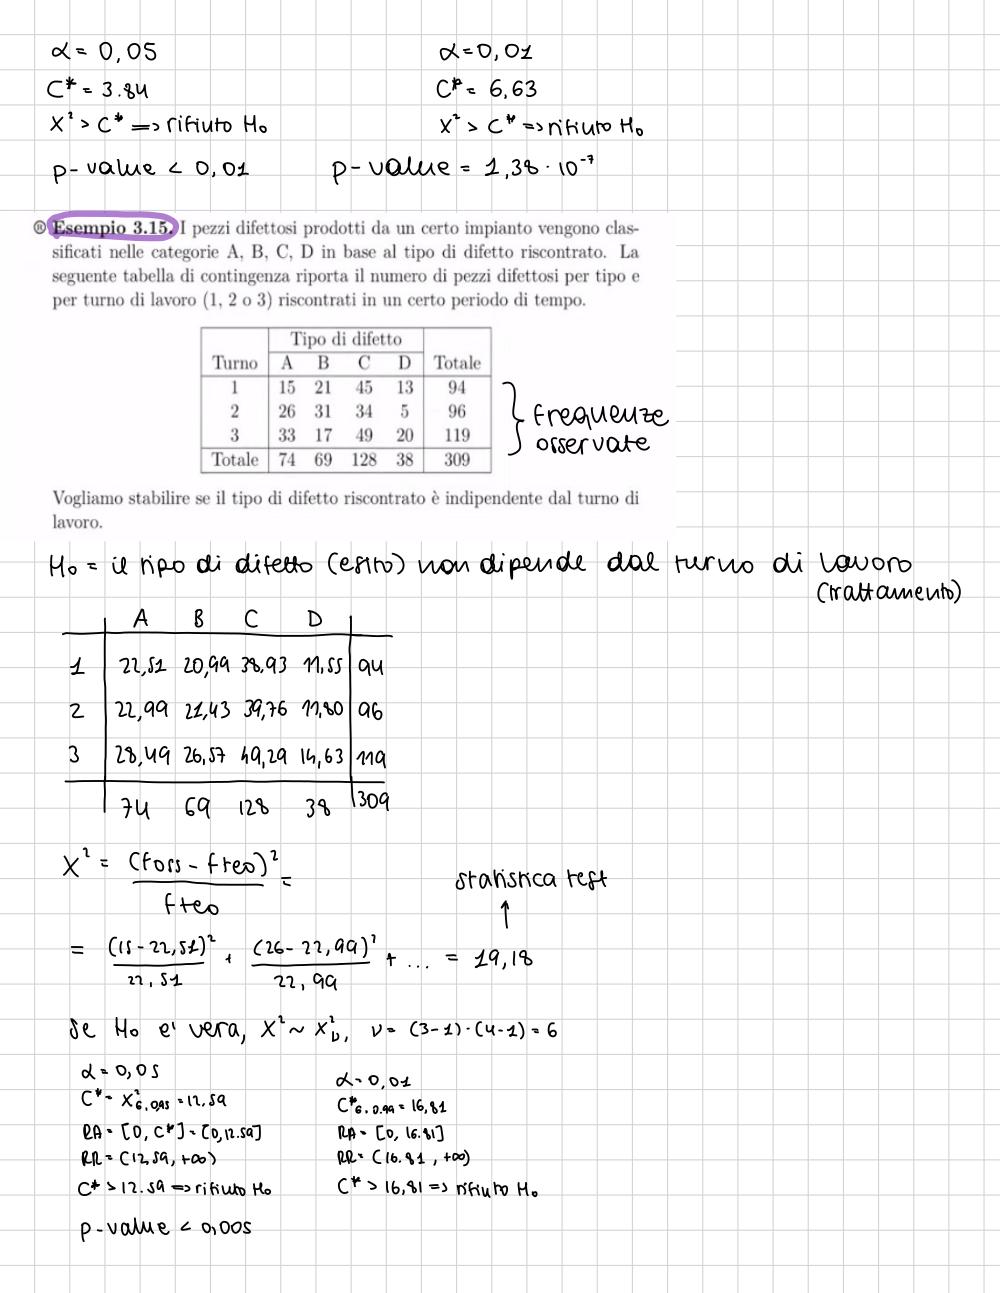 α = 0,05
α = 0,01
C* = 3.84
C* = 6,63
X² > C* => rifiuto H₀
X² > C* => rifiuto H₀
p-value < 0,01
p-value = 1,38 · 10⁻⁷
® Esempio 3.15. I pezzi difettosi prodotti da un certo impianto vengono clas-
sificati nelle categorie A, B, C, D in base al tipo di difetto riscontrato. La
seguente tabella di contingenza riporta il numero di pezzi difettosi per tipo e
per turno di lavoro (1, 2 o 3) riscontrati in un certo periodo di tempo.
Tipo di difetto
Turno A B C D Totale
1 15 21 45 13 94
2 26 31 34 5 96
3 33 17 49 20 119
Totale 74 69 128 38 309
frequenze
osservate
Vogliamo stabilire se il tipo di difetto riscontrato è indipendente dal turno di
lavoro.
H₀ = il tipo di difetto (esito) non dipende dal turno di lavoro
(trattamento)
A B C D
1 22,51 20,99 38,93 11,55 94
2 22,99 21,43 39,76 11,80 96
3 28,49 26,57 49,29 14,63 119
74 69 128 38 309
X² = (foss - fteo)² / fteo =
statistica test
= (15 - 22,51)² / 22,51 + (26 - 22,99)² / 22,99 + ... = 19,18
Se H₀ e' vera, X² ~ X²ᵨ, ν = (3-1)·(4-1) = 6
α = 0,05
α = 0,01
C* = X²6,0.95 = 12,59
C*6,0.99 = 16,81
RA = [0, C*] = [0,12.59]
RA = [0, 16.81]
RR = (12,59, +∞)
RR = (16.81, +∞)
C* > 12.59 => rifiuto H₀
C* > 16,81 => rifiuto H₀
p-value < 0,005